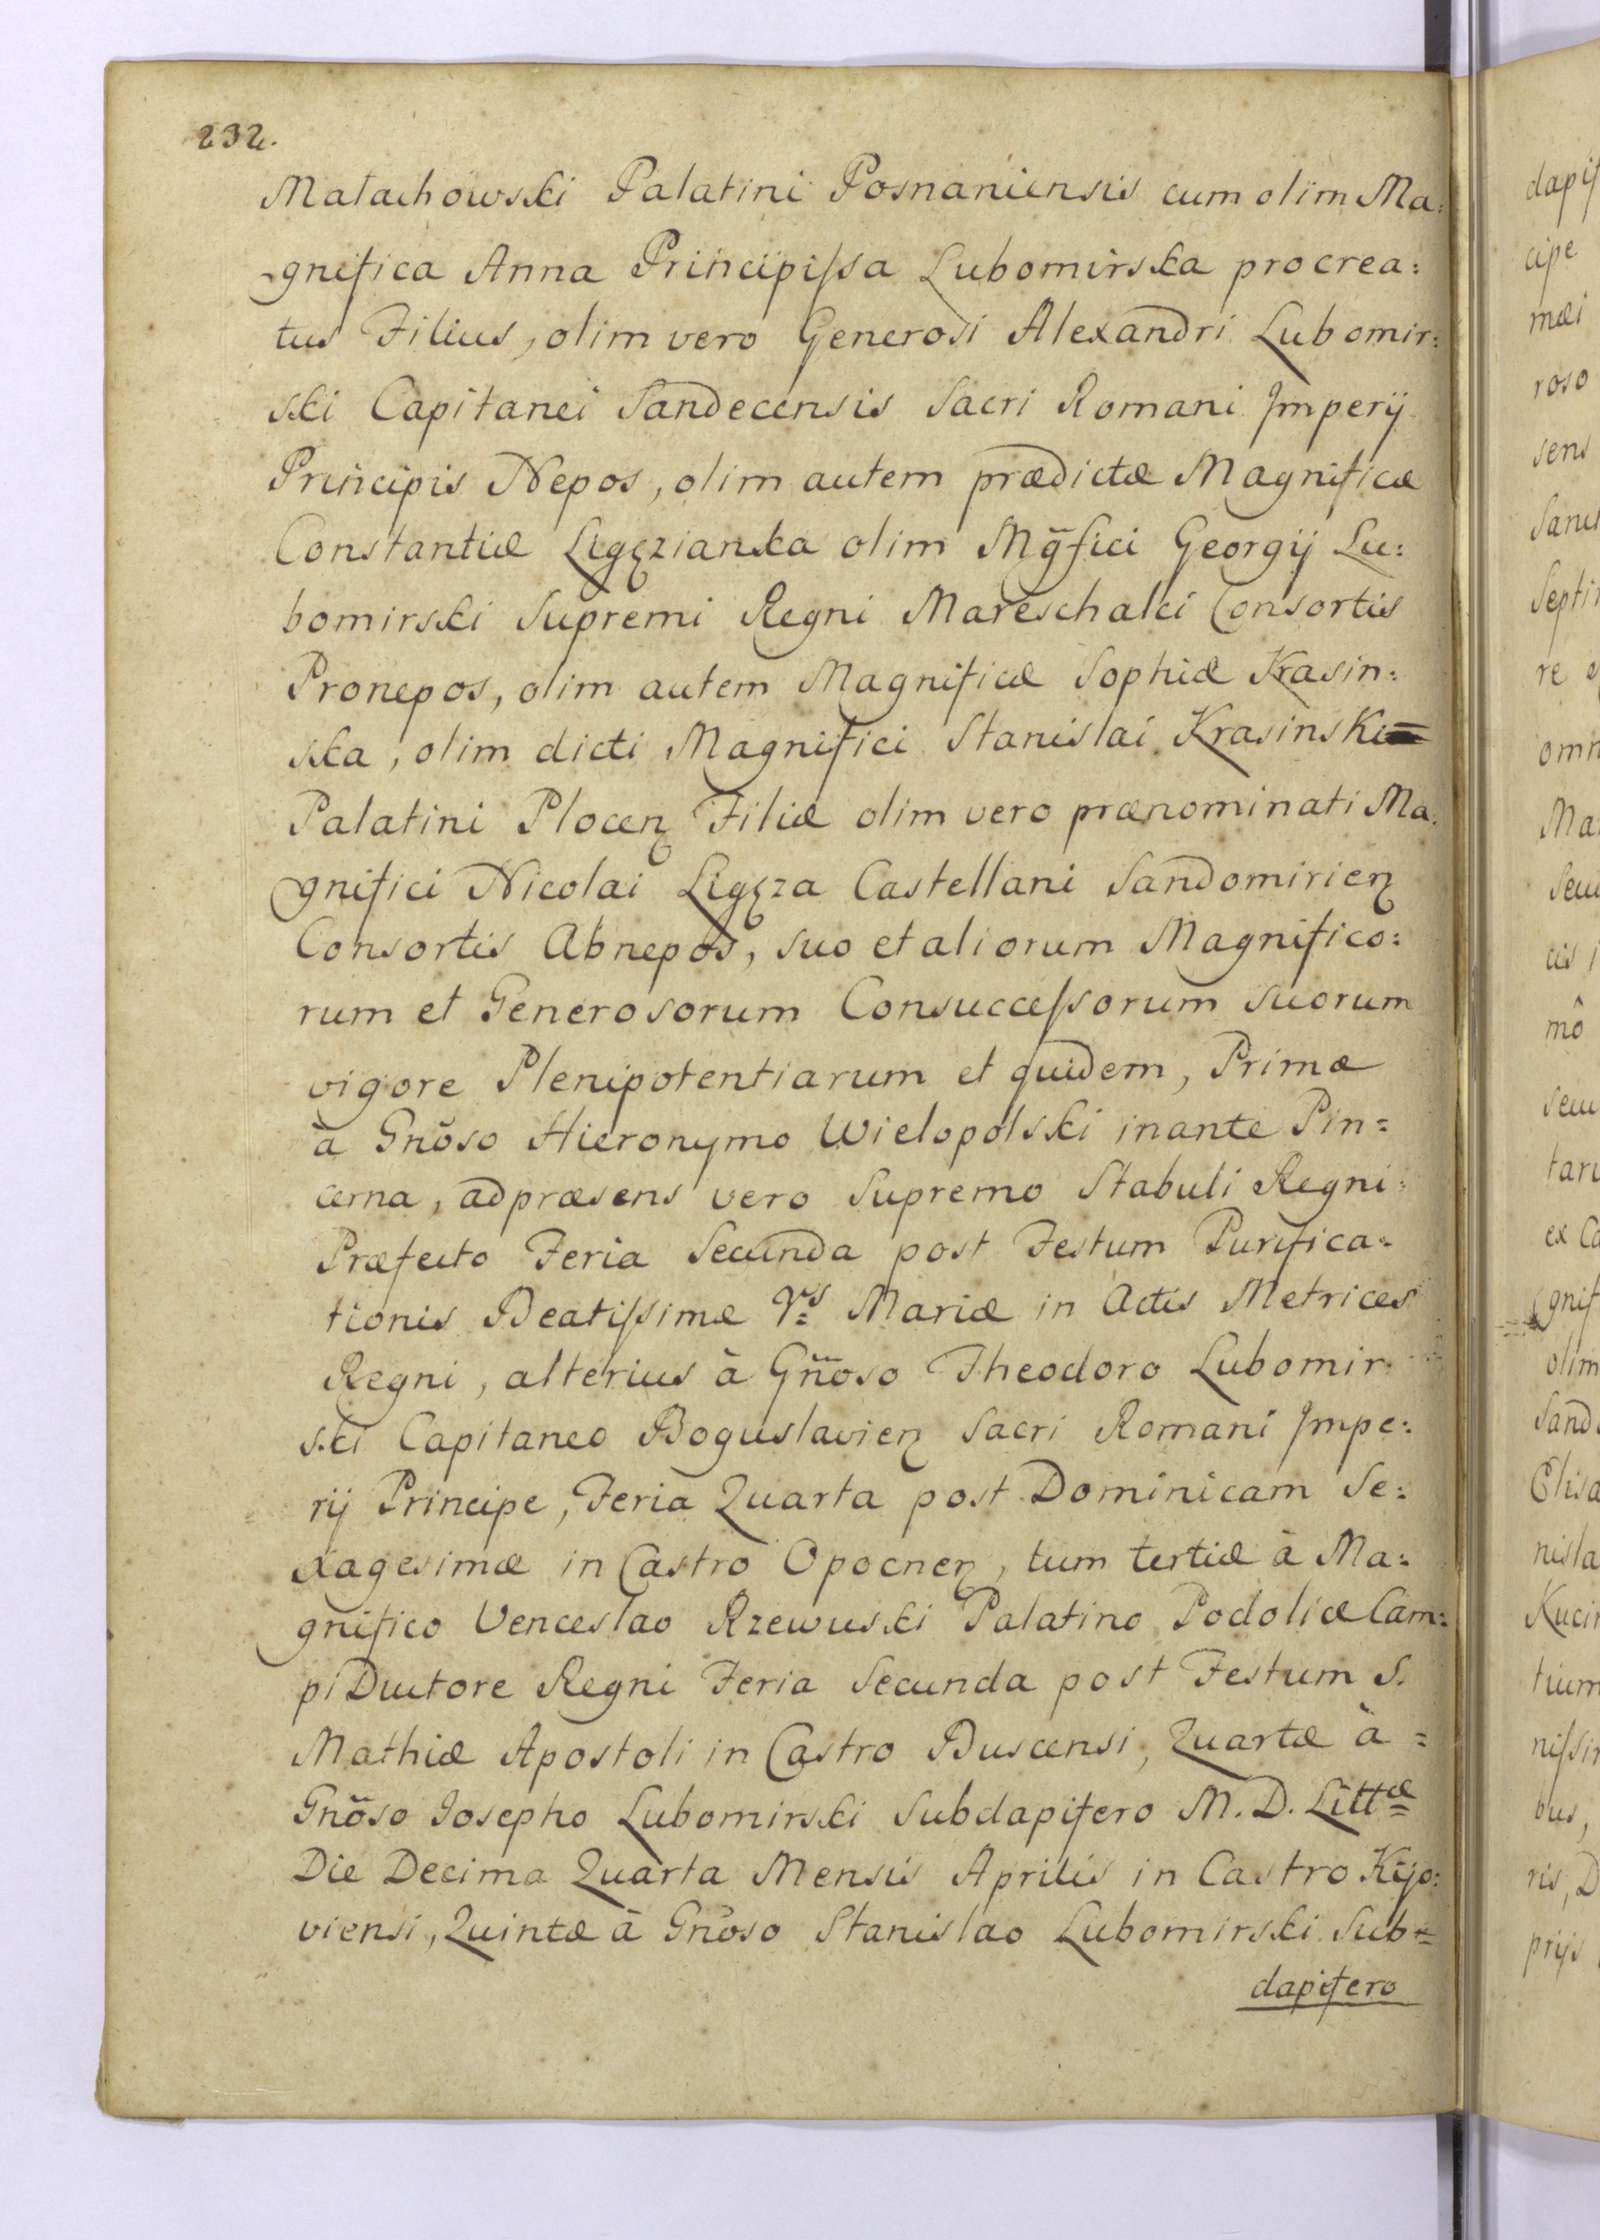 232.
Małachowski Palatini Posnaniensis cum olim Ma:
gnifica Anna Principissa Lubomirska procrea:
tus Filius, olim vero Generosi Alexandri Lubomir:
ski Capitanei Sandecensis Sacri Romani Imperij
Principis Nepos, olim autem prædictæ Magnificæ
Constantiæ Ligęzianka olim Mg̃fici Georgij Lu:
bomirski Supremi Regni Mareschalci Consortis
Pronepos, olim autem Magnificæ Sophiæ Krasin:
ska, olim dicti Magnifici Stanislai Krasinski
Palatini Plocen̄ Filiæ olim vero prænominati Ma:
gnifici Nicolai Ligęza Castellani Sandomirien̄
Consortis Abnepos, suo et aliorum Magnifico:
rum et Generosorum Consuccessorum suorum
vigore Plenipotentiarum et quidem, Primæ
à Gnõso Hieronymo Wielopolski inante Pin=
cerna, ad præsens vero Supremo Stabuli Regni
Præfecto Feria Secunda post Festum Purifica=
tionis Beatissimæ Vs Mariæ in Actis Metrices
Regni, alterius à Gñoso Theodoro Lubomir
ski Capitaneo Boguslavien̄ Sacri Romani Impe:
rij Principe, Feria Quarta post Dominicam Se:
xagesimæ in Castro Opocnen̄, tum tertiæ à Ma:
gnifico Venceslao Rzewuski Palatino Podoliæ Cam:
pi Ductore Regni Feria Secunda post Festum S.
Mathiæ Apostoli in Castro Buscensi, Quartæ à =
Gnõso Iosepho Lubomirski Subdapifero M. D. Littæ
Die Decima Quarta Mensis Aprilis in Castro Kijo:
viensi, Quintæ à Gnõso Stanislao Lubomirski Sub=
dapifero